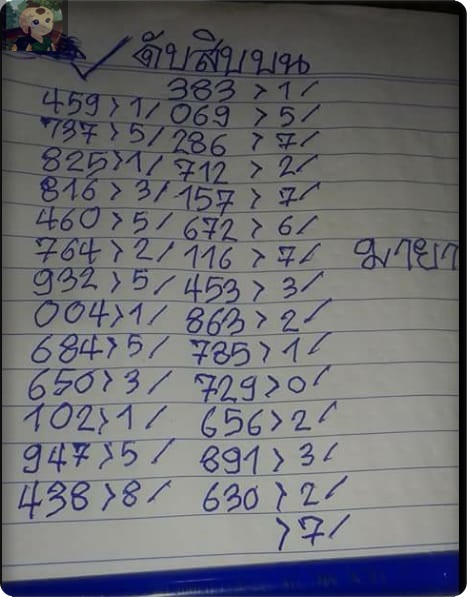 ดับสิบบน
383 > 1 /
459 > 1 / 069 > 5 /
737 > 5 / 286 > 7 /
825 > 1 / 712 > 2 /
816 > 3 / 157 > 7 /
460 > 5 / 672 > 6 /
764 > 2 / 116 > 7 / มายา
932 > 5 / 453 > 3 /
004 > 1 / 863 > 2 /
684 > 5 / 785 > 1 /
650 > 3 / 729 > 0 /
102 > 1 / 656 > 2 /
947 > 5 / 891 > 3 /
438 > 8 / 630 > 2 /
> 7 /